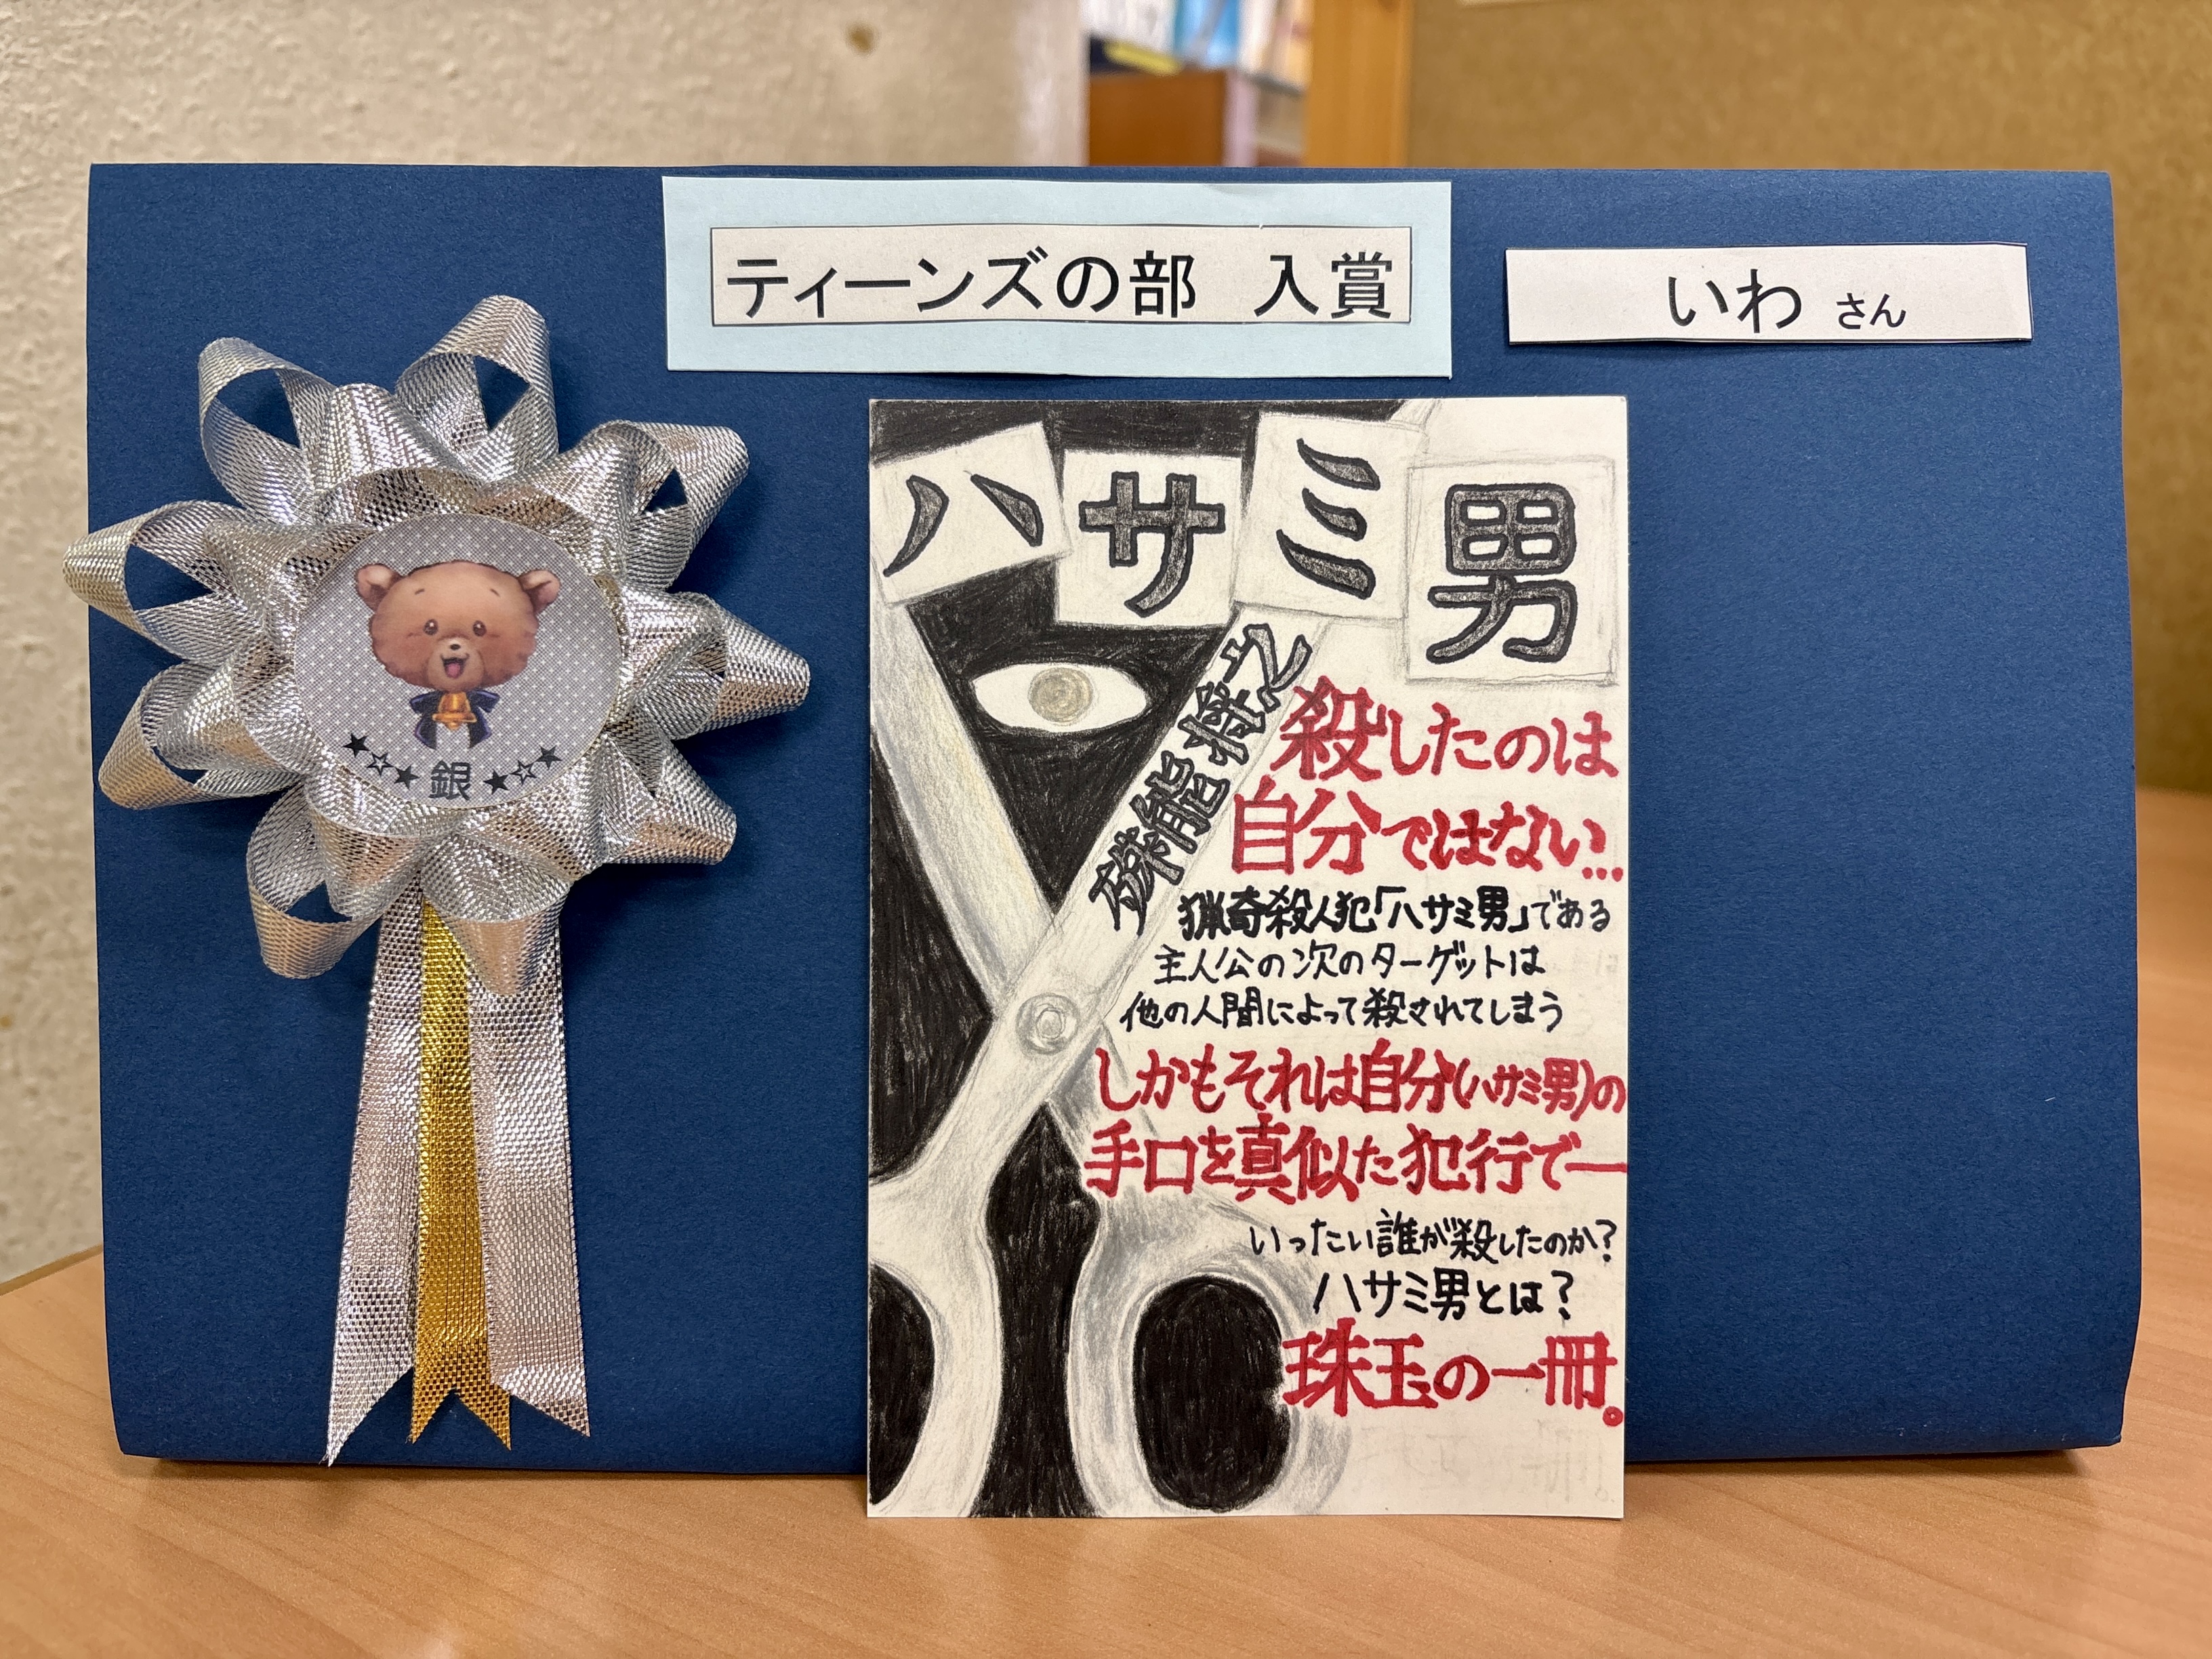 ティーンズの部 入賞
いわ さん
銀
ハサミ男
殊能将之
殺したのは
自分ではない…
猟奇殺人犯「ハサミ男」である
主人公の次のターゲットは
他の人間によって殺されてしまう
しかもそれは自分(ハサミ男)の
手口を真似た犯行で―
いったい誰が殺したのか?
ハサミ男とは?
珠玉の一冊。